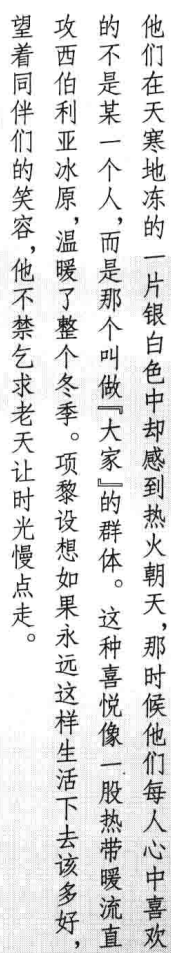 他们在天寒地冻的一片银白色中却感到热火朝天，那时候他们每人心中喜欢
的不是某一个人，而是那个叫做『大家』的群体。这种喜悦像一股热带暖流直
攻西伯利亚冰原，温暖了整个冬季。项黎设想如果永远这样生活下去该多好，
望着同伴们的笑容，他不禁乞求老天让时光慢点走。